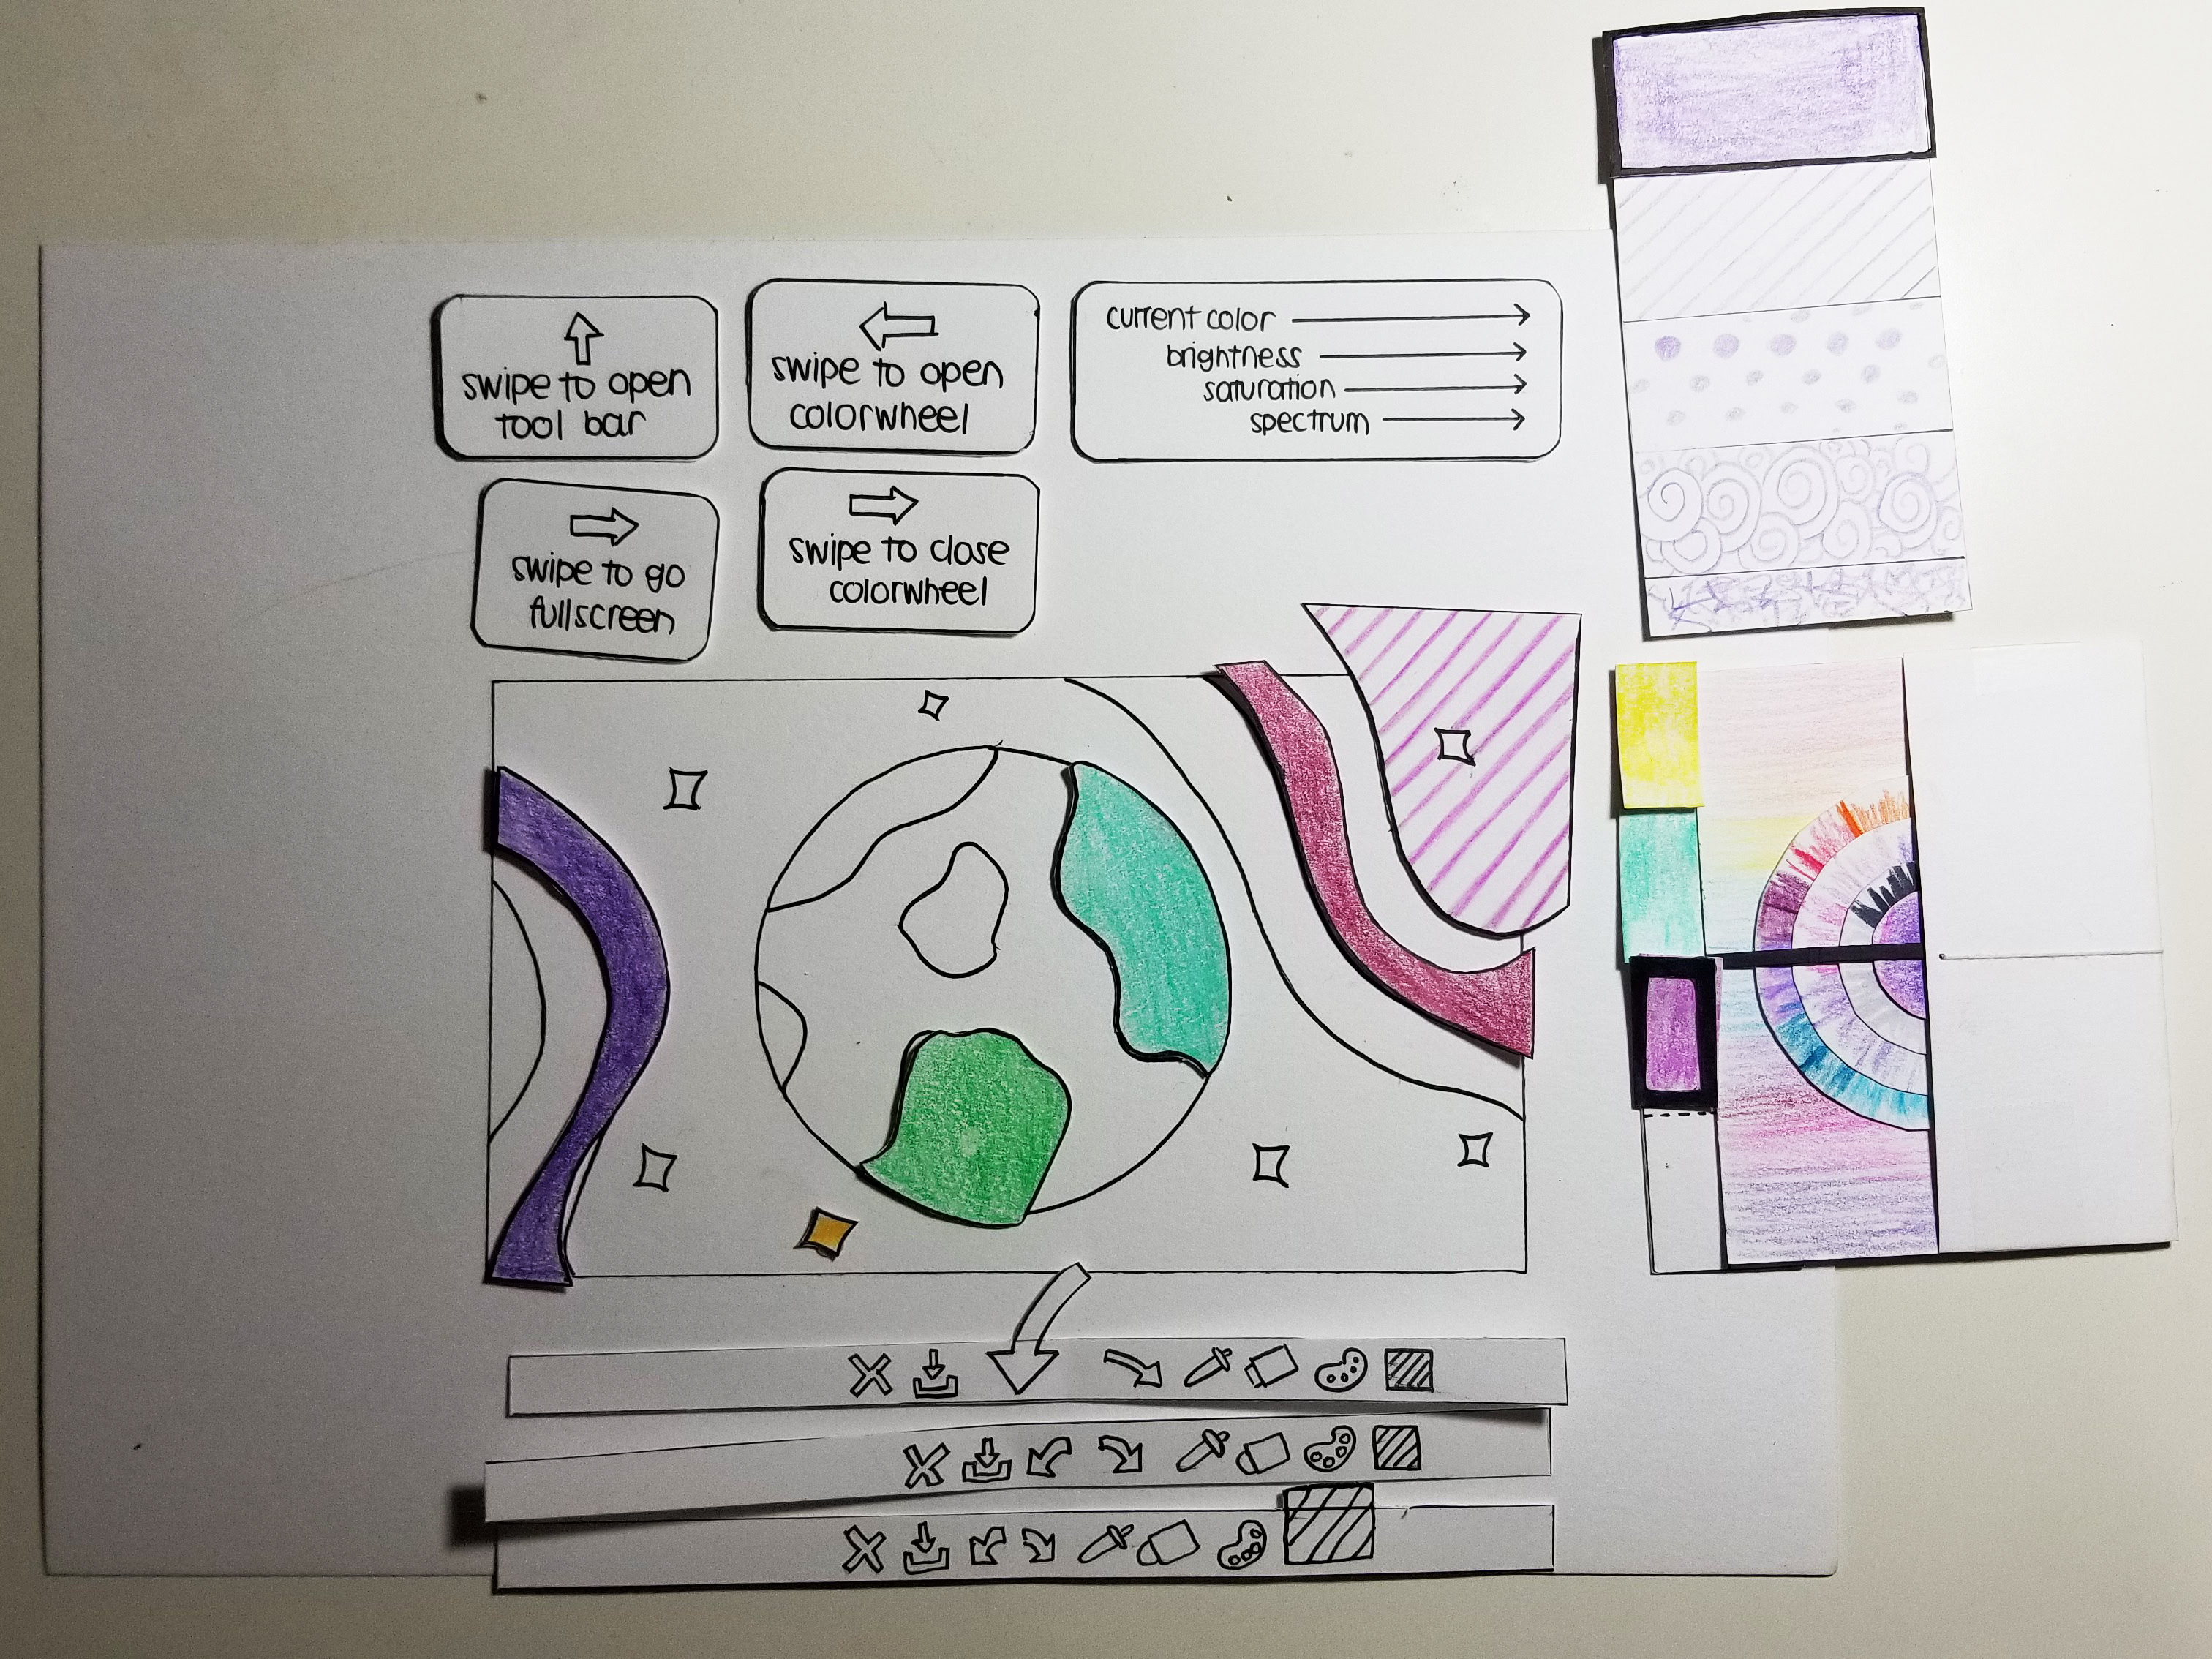 swipe to open
tool bar
swipe to open
colorwheel
current color
brightness
saturation
spectrum
swipe to go
fullscreen
swipe to close
colorwheel